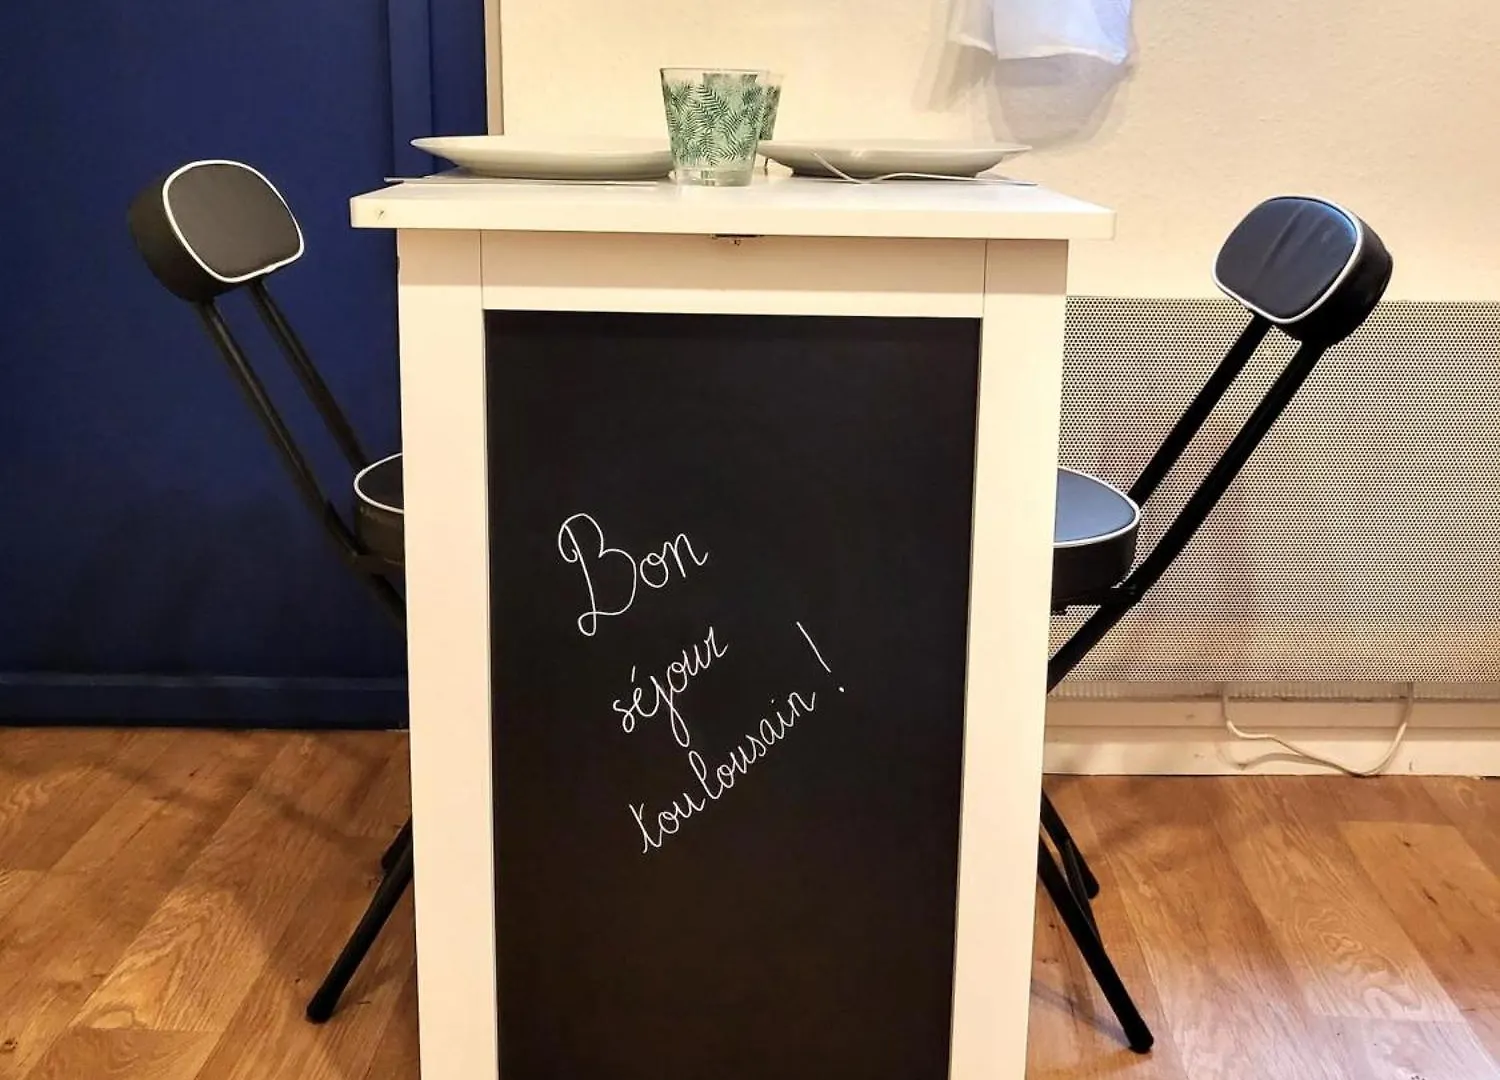 Bon
séjour
toulousain !